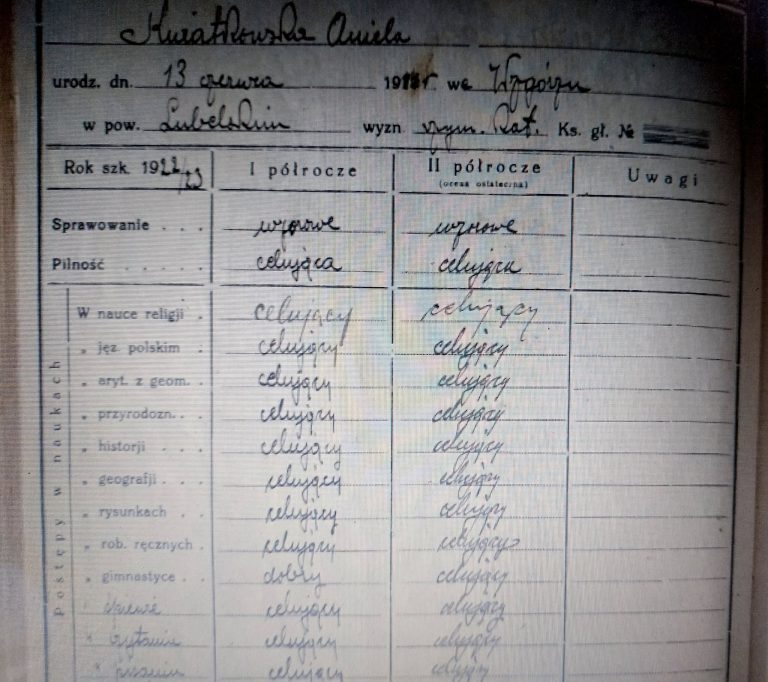 Kwiatkowska Aniela
urodz. dn. 13 czerwca 191 r we Wzgórzu
w pow. Lubelskim wyzn rzym. Kat. Ks. gł. №
Rok szk. 1922/23 I półrocze II półrocze Uwagi
(ocena ostateczna)
Sprawowanie . . . wzorowe wzorowe
Pilność . . . . . celująca celująca
Postępy w naukach
W nauce religji . celujący celujący
„ jęz. polskim . celujący celujący
„ aryt. z geom. . celujący celujący
„ przyrodozn. . . celujący celujący
„ historji . . . celujący celujący
„ geografji . . . celujący celujący
„ rysunkach . . celujący celujący
„ rob. ręcznych . celujący celujący
„ gimnastyce . . dobry celujący
„ śpiewie celujący celujący
„ czytaniu celujący celujący
„ pisaniu celujący celujący